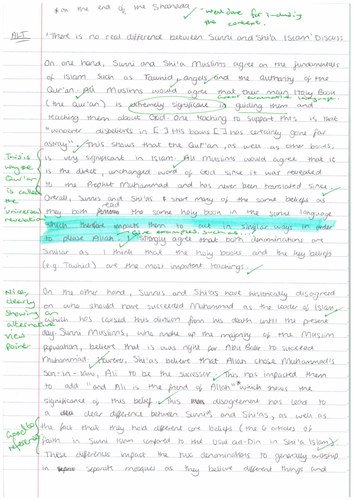 on the end of the Shahada. ✓ well done for including
the context.
ALT 'There is no real difference between Sunni and Shi'a Islam' Discuss
On one hand, Sunni and Shi'a Muslims agree on the fundamentals
of Islam such as Tawhid, angels and the authority of the
Qur'an. All Muslims would agree that their main Holy Book
(the Qur'an) is extremely significant in guiding them and
teaching them about God. One teaching to support this is that
"Whoever disbelieves in [...] His books [...] has certainly gone far
astray". This shows that the Qur'an, as well as other books,
is very significant in Islam. All Muslims would agree that it
is the direct, unchanged word of God since it was revealed
to the Prophet Muhammad and has never been translated since.
Overall, Sunnis and Shi'as share many of the same beliefs as
they both read the same holy book in the same language
which therefore impacts them to act in similar ways in order
to please Allah. I strongly agree that both denominations are
similar as I think that the holy books and the key beliefs
(e.g. Tawhid) are the most important teachings.
This is
why the
Qur'an
is called
the
universal
revelation
On the other hand, Sunnis and Shi'as have historically disagreed
on who should have succeeded Muhammad as the leader of Islam
which has caused this division from his death until the present
day. Sunni Muslims, who make up the majority of the Muslim
population, believe that it was right for Abu Bakr to succeed
Muhammad. However, Shi'as believe that Allah chose Muhammad's
son-in-law, Ali, to be the successor. This has impacted them
to add "and Ali is the friend of Allah" which shows the
significance of this belief. This disagreement has lead to
a clear difference between Sunni's and Shi'as, as well as
the fact that they hold different core beliefs (the 6 articles of
faith in Sunni Islam compared to the Usul ad-Din in Shi'a Islam).
These differences impact the two denominations to generally worship
in separate mosques as they believe different things and
Nice,
clearly
showing an
alternative
view
point
Good to
reference